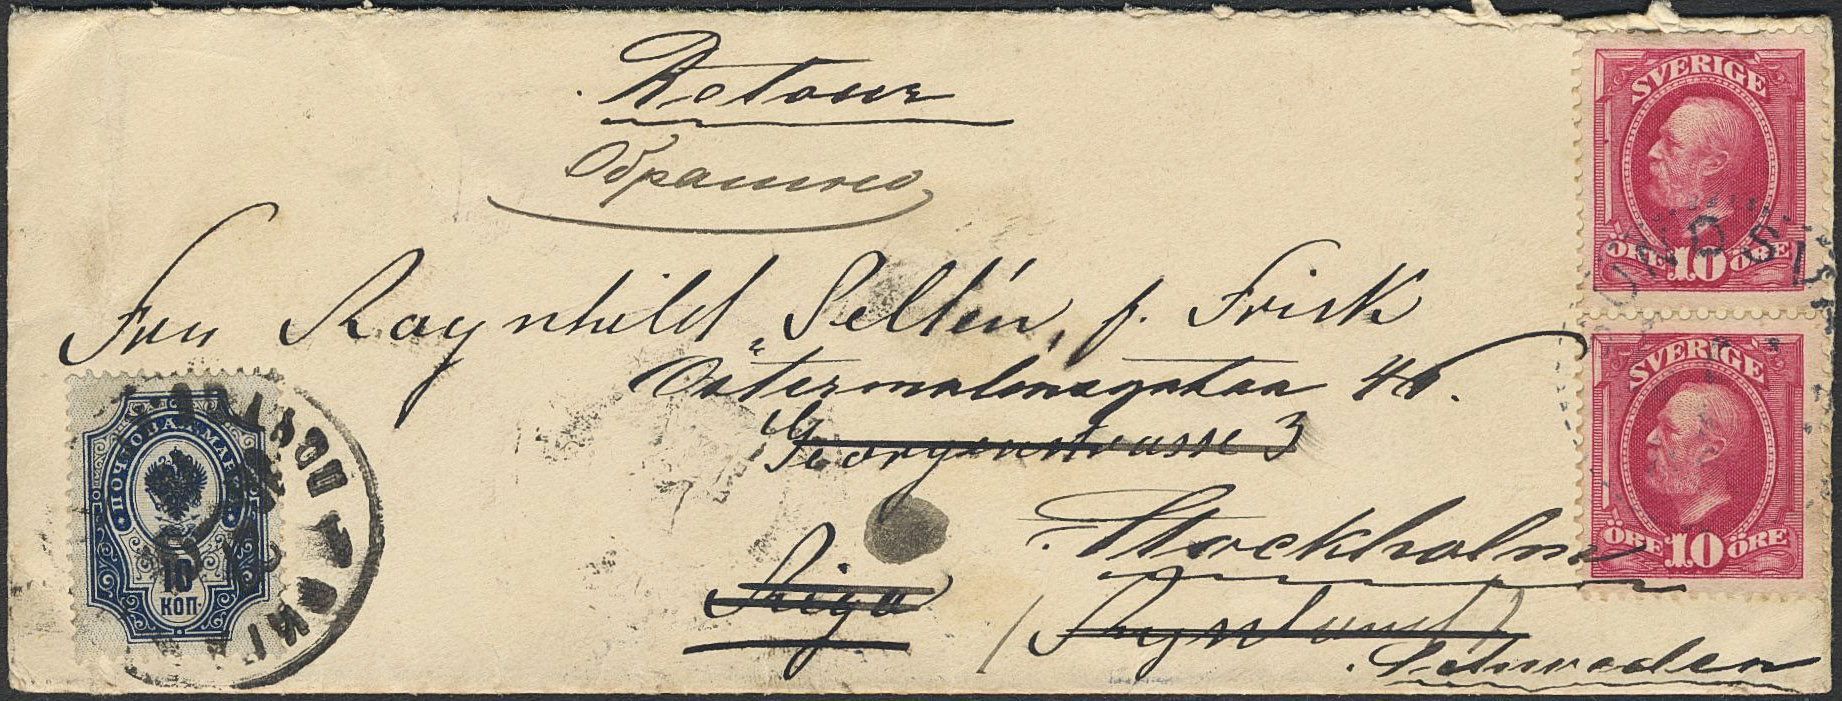 Retour
Обратно
SVERIGE
ÖRE 10 ÖRE
Fru Raynhild Sellén, f. Frisk
Östermalmsgatan 46.
Georgenstrasse 3
SVERIGE
ÖRE 10 ÖRE
Stockholm
Riga
Schweden
ПОЧТОВАЯ МАРКА
10
КОП.